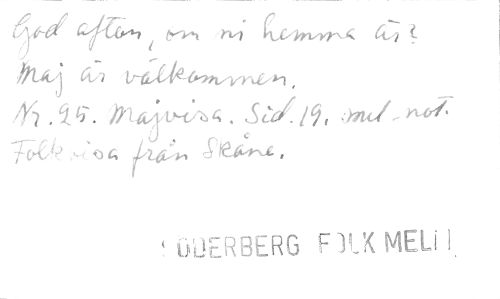 God afton, om ni hemma är?
Maj är välkommen.
Nr. 25. Majvisa. Sid. 19. mel-not.
Folkvisa från Skåne.
SÖDERBERG FOLKMEL